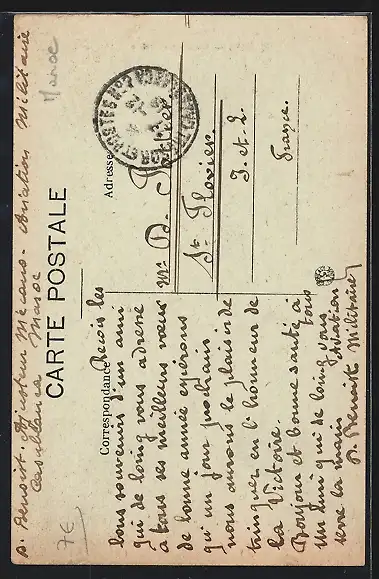 P. Benoist. Ajusteur Mécano. Aviation Militaire
Casablanca Maroc
Maroc
CARTE POSTALE
Correspondance
Adresse
Reçois les
bons souvenirs d'un ami
qui de loing vous adresse
a tous ses meilleurs vœux
de bonne année espérons
qui un jour prochain
nous aurons le plaisir de
trinquer en l'honneur de
la Victoire.
Bonjour et bonne santé à tous
Un ami qui de loing vous
serre la main
P. Benoist Aviation Militaire
Mr P.
St Flovier.
I. et. L.
France.
7€